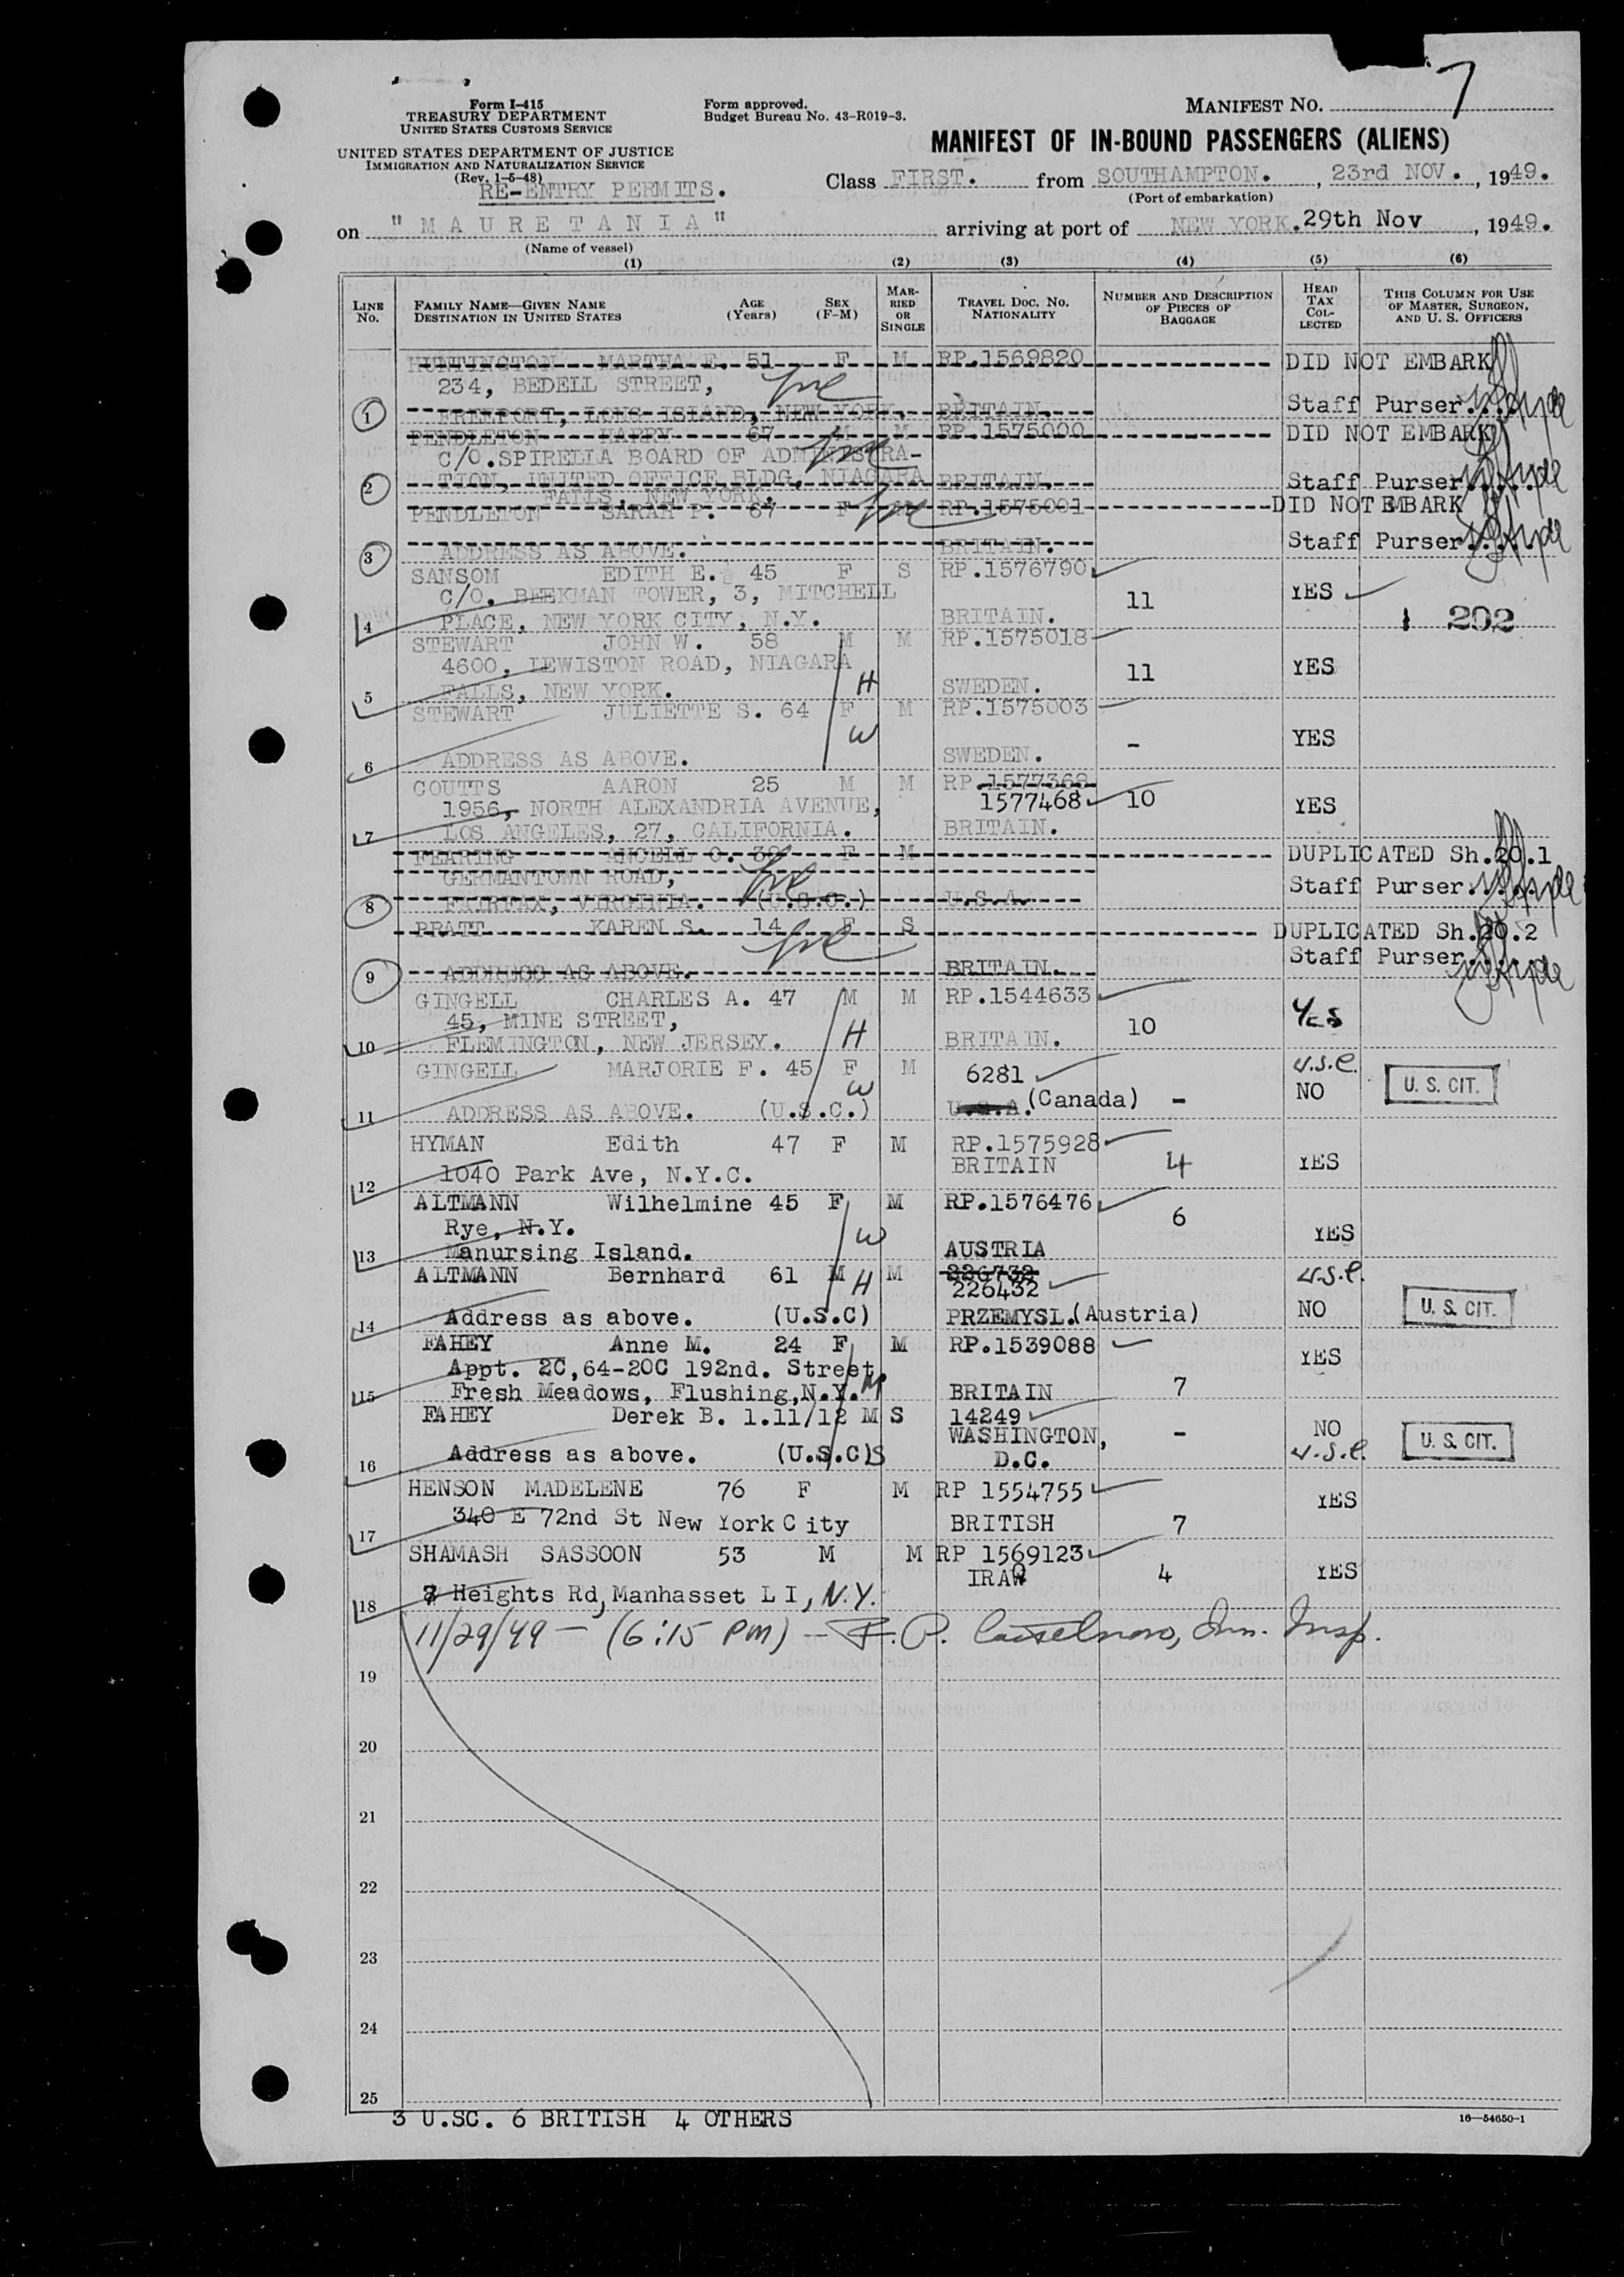 Form I-415
TREASURY DEPARTMENT
UNITED STATES CUSTOMS SERVICE
Form approved.
Budget Bureau No. 43-R019-3.
MANIFEST NO. 7
UNITED STATES DEPARTMENT OF JUSTICE
IMMIGRATION AND NATURALIZATION SERVICE
(Rev. 1-5-48)
MANIFEST OF IN-BOUND PASSENGERS (ALIENS)
RE-ENTRY PERMITS.
Class FIRST. from SOUTHAMPTON., 23rd NOV., 1949.
(Port of embarkation)
on "MAURETANIA" arriving at port of NEW YORK. 29th Nov, 1949.
(Name of vessel)
(1) (2) (3) (4) (5) (6)
LINE NO. FAMILY NAME—GIVEN NAME DESTINATION IN UNITED STATES AGE (Years) SEX (F-M) MARRIED OR SINGLE TRAVEL DOC. NO. NATIONALITY NUMBER AND DESCRIPTION OF PIECES OF BAGGAGE HEAD TAX COLLECTED THIS COLUMN FOR USE OF MASTER, SURGEON, AND U. S. OFFICERS
HUNTINGTON MARTHA E. 51 F M RP.1569820 DID NOT EMBARK
234, BEDELL STREET,
1 FREEPORT, LONG ISLAND, NEW YORK. BRITAIN. Staff Purser....
PENDLETON HARRY 67 M M RP.1575000 DID NOT EMBARK
C/O.SPIRELIA BOARD OF ADMINISTRA-
2 TION, UNITED OFFICE BLDG, NIAGARA BRITAIN. Staff Purser.....
FALLS, NEW YORK.
PENDLETON SARAH P. 67 F M RP.1575001 DID NOT EMBARK
3 ADDRESS AS ABOVE. BRITAIN. Staff Purser.....
SANSOM EDITH E. 45 F S RP.1576790
C/O. BEEKMAN TOWER, 3, MITCHELL 11 YES
4 PLACE, NEW YORK CITY, N.Y. BRITAIN. 1 202
STEWART JOHN W. 58 M M RP.1575018
4600, LEWISTON ROAD, NIAGARA 11 YES
5 FALLS, NEW YORK. H SWEDEN.
STEWART JULIETTE S. 64 F M RP.1575003
W - YES
6 ADDRESS AS ABOVE. SWEDEN.
COUTTS AARON 25 M M RP.1577368
1956, NORTH ALEXANDRIA AVENUE, 1577468 10 YES
7 LOS ANGELES, 27, CALIFORNIA. BRITAIN.
FEARING ANCELL O. 39 F M DUPLICATED Sh.20.1
GERMANTOWN ROAD, Staff Purser.....
8 FAIRFAX, VIRGINIA. (U.S.C.) U.S.A.
PRATT KAREN S. 14 F S DUPLICATED Sh.20.2
9 ADDRESS AS ABOVE. BRITAIN. Staff Purser.....
GINGELL CHARLES A. 47 M M RP.1544633
45, MINE STREET, 10 Yes
10 FLEMINGTON, NEW JERSEY. H BRITAIN.
GINGELL MARJORIE F. 45 F M 6281 U.S.C.
W NO U. S. CIT.
11 ADDRESS AS ABOVE. (U.S.C.) U.S.A. (Canada) -
HYMAN Edith 47 F M RP.1575928
BRITAIN 4 YES
12 1040 Park Ave, N.Y.C.
ALTMANN Wilhelmine 45 F M RP.1576476
Rye, N.Y. W 6 YES
13 Manursing Island. AUSTRIA
ALTMANN Bernhard 61 M H M 226732 U.S.C.
226432
14 Address as above. (U.S.C) PRZEMYSL.(Austria) NO U. S. CIT.
FAHEY Anne M. 24 F M RP.1539088
Appt. 2C,64-20C 192nd. Street YES
15 Fresh Meadows, Flushing,N.Y. M BRITAIN 7
FAHEY Derek B. 1.11/12 M S 14249
WASHINGTON, - NO
16 Address as above. (U.S.C) S D.C. U.S.C. U. S. CIT.
HENSON MADELENE 76 F M RP 1554755 YES
17 340 E 72nd St New York City BRITISH 7
SHAMASH SASSOON 53 M M RP 1569123
IRAQ 4 YES
18 Heights Rd, Manhasset L I, N.Y.
11/29/49 — (6:15 PM) — Imm. Insp.
19
20
21
22
23
24
25
3 U.SC. 6 BRITISH 4 OTHERS
16—54650-1